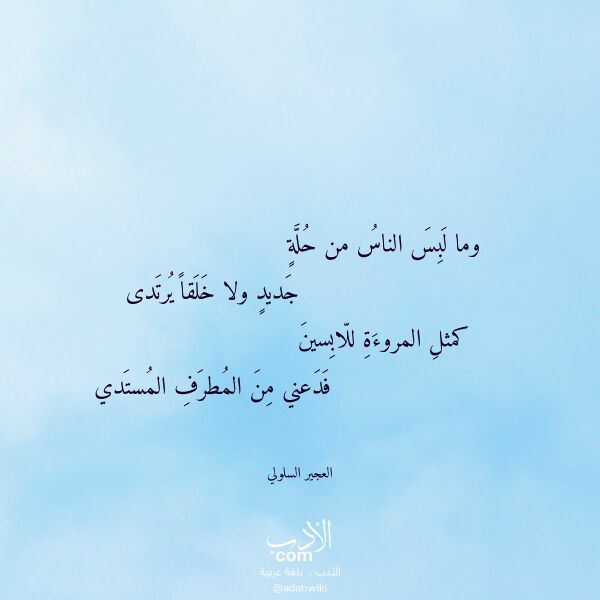 وما لَبِسَ الناسُ من حُلَّةٍ
جَديدٍ ولا خَلَقاً يُرتَدى
كمثلِ المروءَةِ للّابِسينَ
فَدَعني مِنَ المُطرَفِ المُستَدي
العجير السلولي
الأدب
com
الأدب .. بلغة عربية
@adabwiki